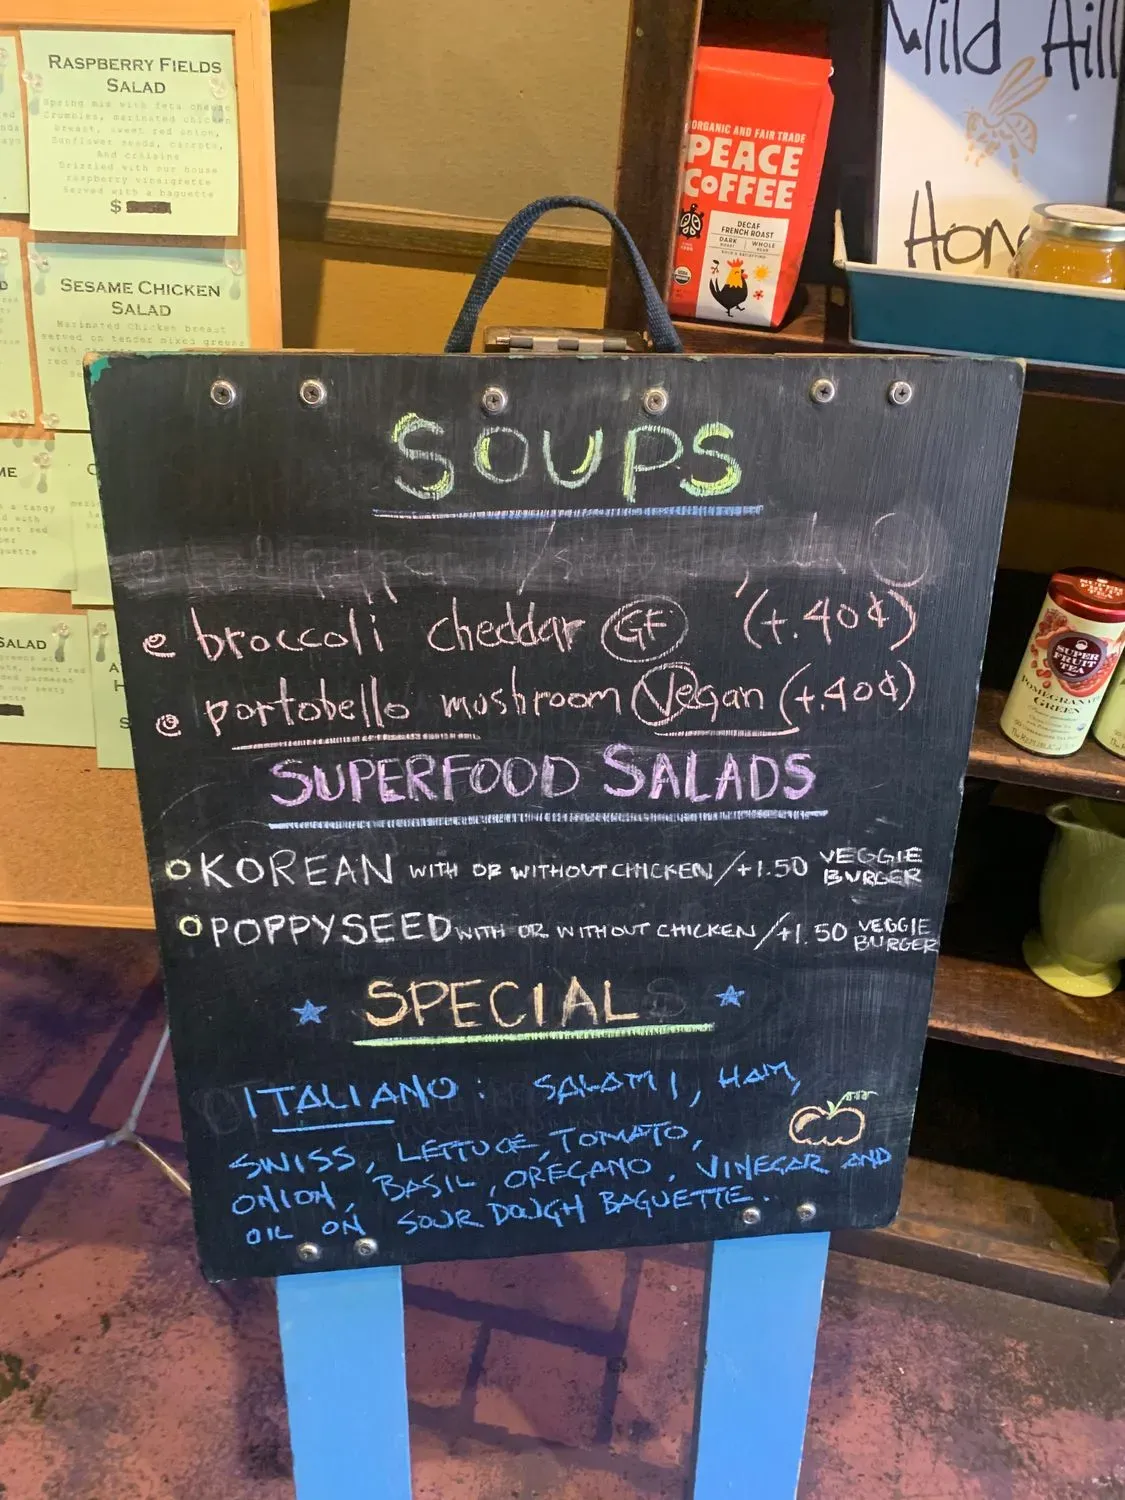 RASPBERRY FIELDS
SALAD
Spring mix with feta cheese
Crumbles, marinated chicken
breast, sweet red onion,
Sunflower seeds, carrots,
And craisins
Drizzled with our house
raspberry vinaigrette
Served with a baguette
$
SESAME CHICKEN
SALAD
Marinated Chicken breast
served on tender mixed greens
with
red
SALAD
ORGANIC AND FAIR TRADE
PEACE
COFFEE
DECAF
FRENCH ROAST
DARK ROAST
WHOLE BEAN
Wild
SUPER
FRUIT
TEA
POMEGRANATE
GREEN
SOUPS
broccoli cheddar GF (+.40¢)
portobello mushroom Vegan (+.40¢)
SUPERFOOD SALADS
KOREAN WITH OR WITHOUT CHICKEN/+1.50 VEGGIE BURGER
POPPYSEED WITH OR WITHOUT CHICKEN/+1.50 VEGGIE BURGER
SPECIAL
ITALIANO: SALAMI, HAM,
SWISS, LETTUCE, TOMATO,
ONION, BASIL, OREGANO, VINEGAR AND
OIL ON SOUR DOUGH BAGUETTE.